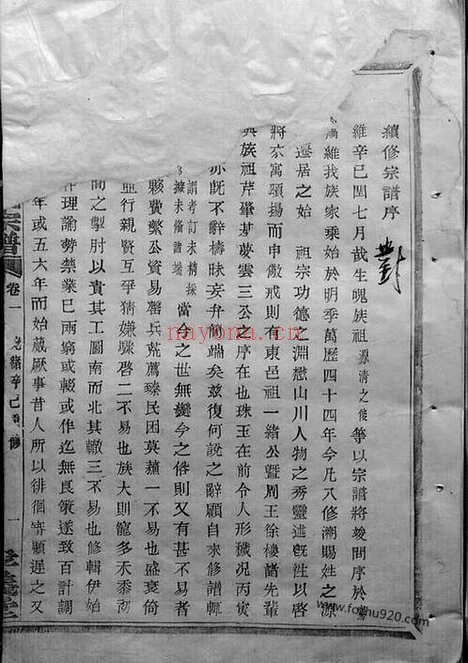 續修宗譜序
維辛巳閏七月哉生魄族祖源清之俊等以宗譜將竣問序於
維我族家乘始於明季萬歷四十四年今凡八修溯賜姓之源
遷居之始 祖宗功德之淵懋山川人物之秀靈述旣往以啓
將來寓頌揚而申儆戒則有東邑祖一緒公暨周王徐樓諸先輩
族祖芹畢芽夢雲三公之序在也珠玉在前令人形穢况丙寅
亦旣不辭檮昧妄弁簡端矣茲復何說之辭顧自來修譜輕
謂考訂未精採
摭未備諸端
當今之世無難今之俗則又有甚不易者
骸費繁公資易罄兵荒薦臻民困莫蘇一不易也盛衰倚
並行親賢互爭猜嫌驟啓二不易也族大則寵多禾黍
間之掣肘以貴其工圖南而北其轍三不易也修輯伊始
作理論勢禁業已兩窮或輟或作迄無良策遂致百計調
年或五六年而始蕆厥事昔人所以徘徊寄顧遲之又
宗譜
卷一
光緒辛巳重修
一